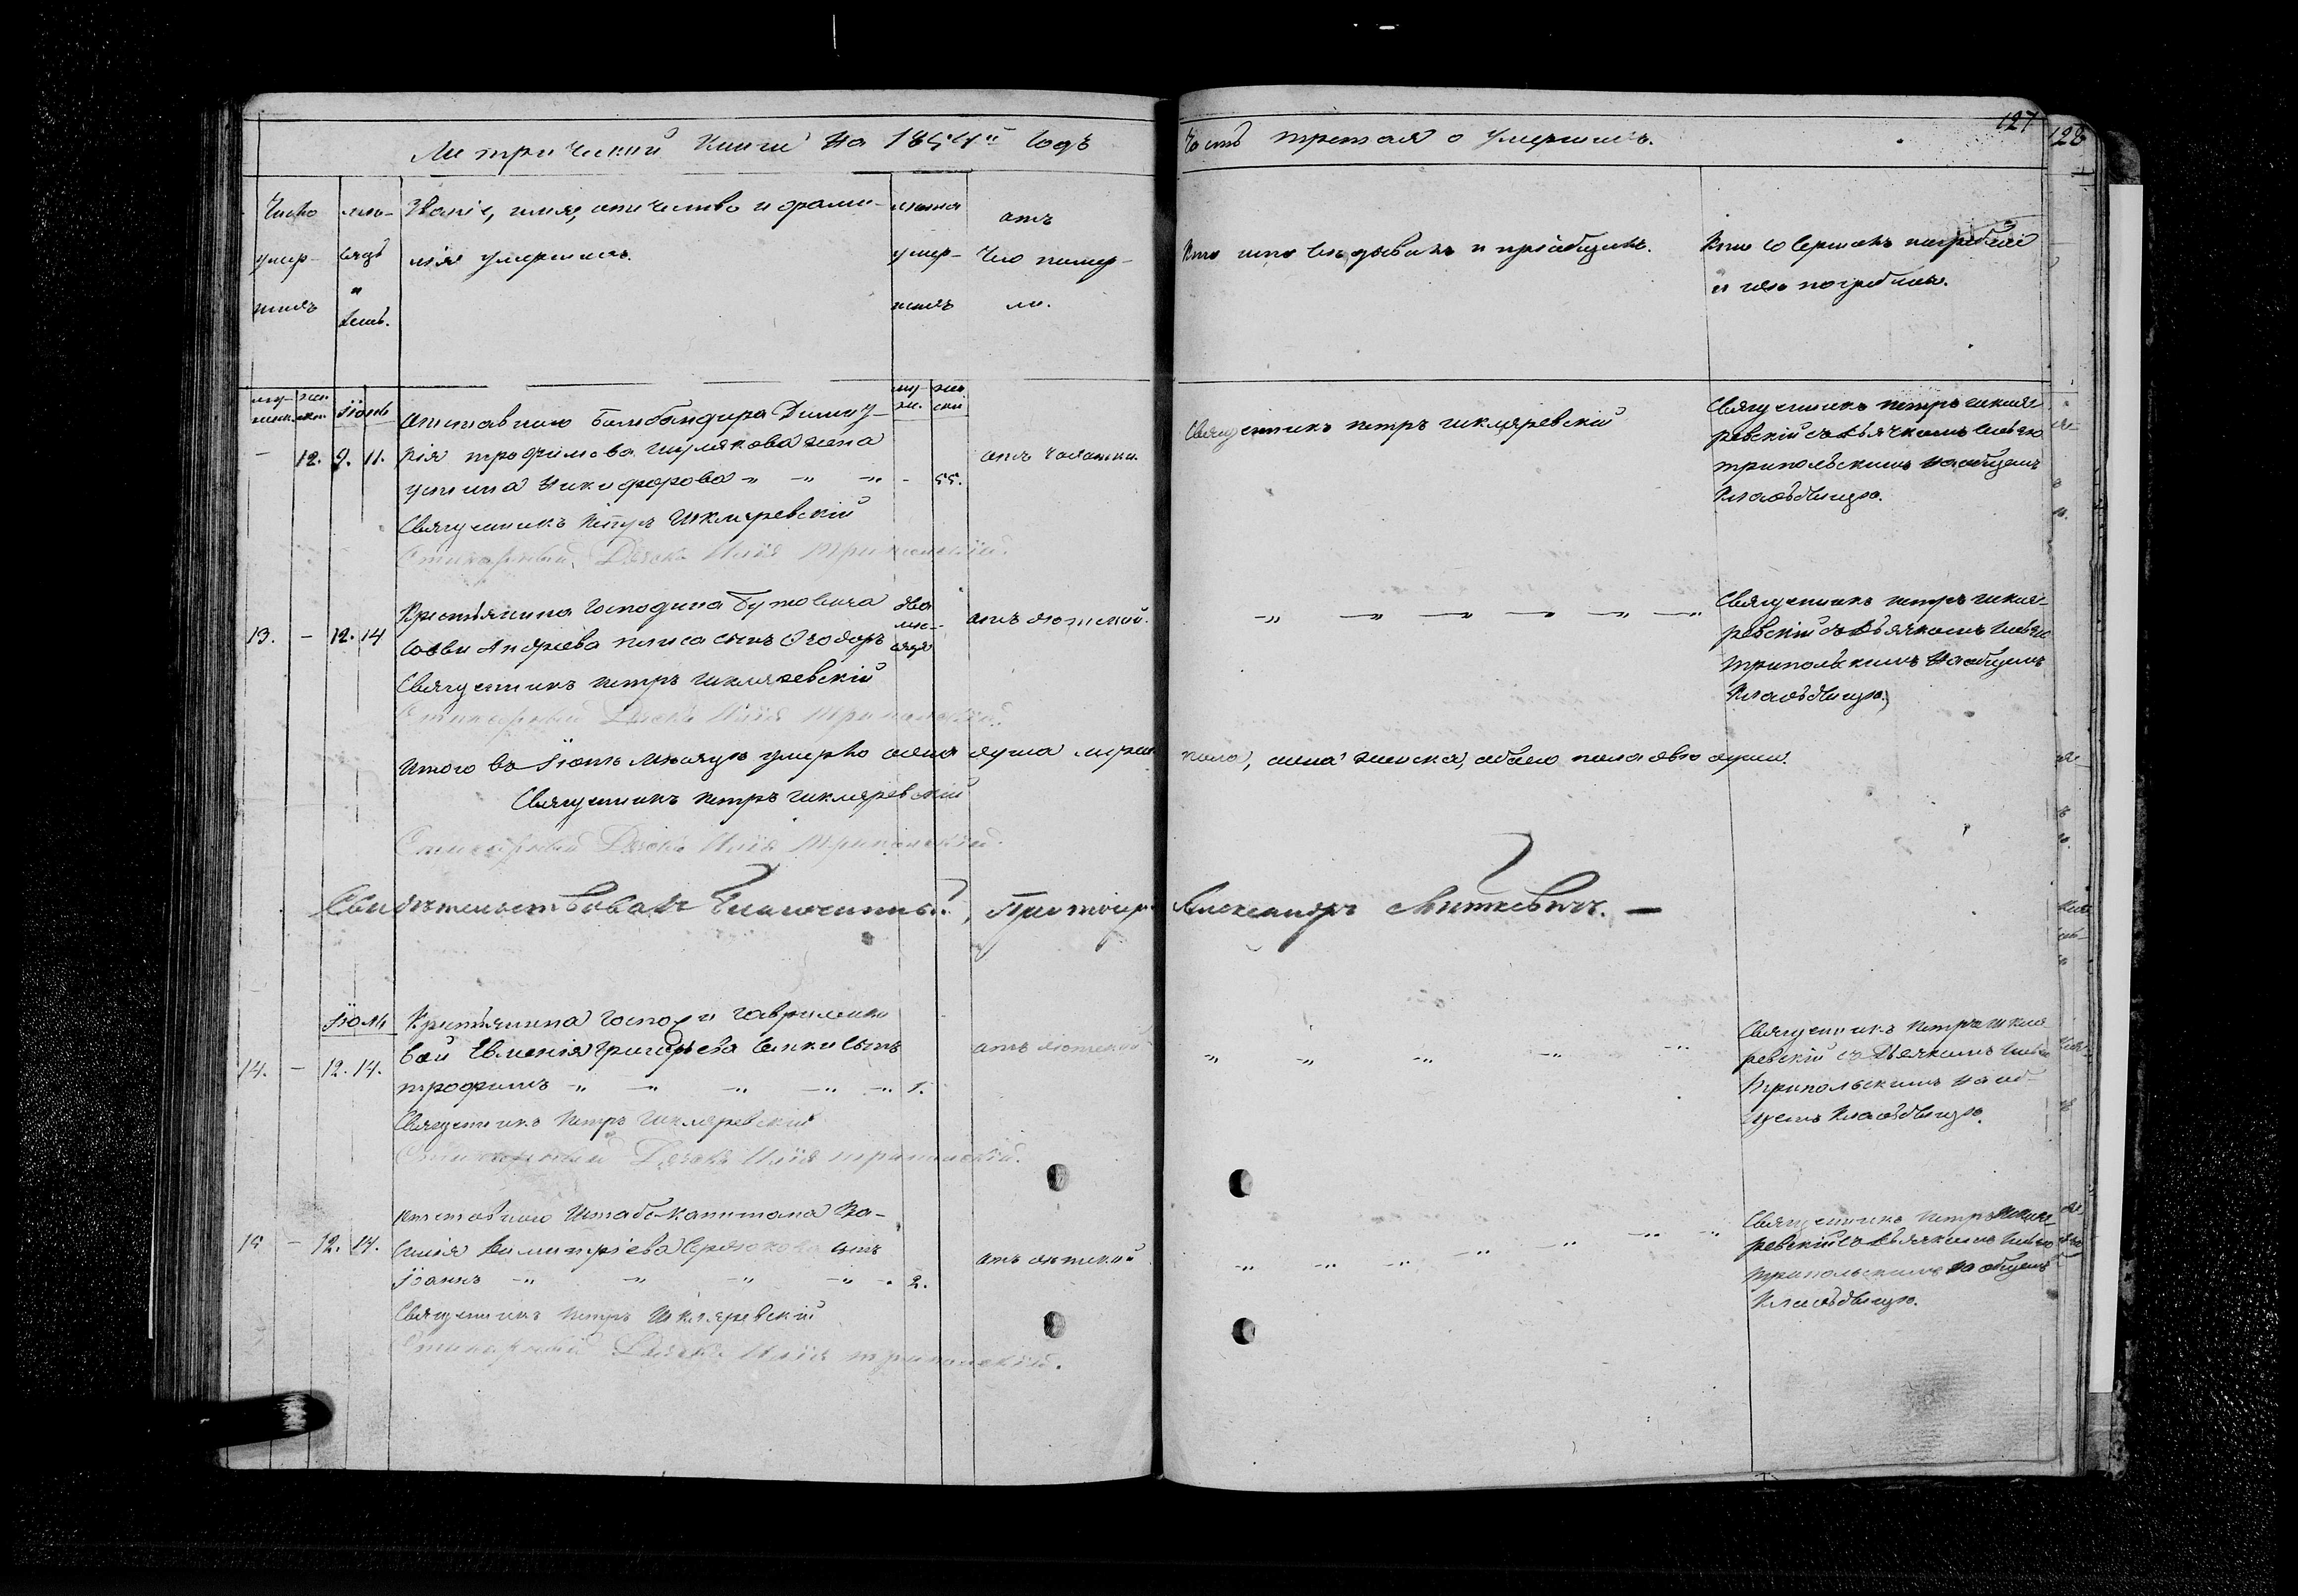 Метрической Книги на 1854й Годъ
Часть третая о Умершихъ.
127
128
Число умер- шихъ
мѣ- сяцъ и день.
Званіе, имя, отчество и фами-
лія умершихъ.
лѣта умер- шихъ
отъ
чего помер-
ли.
Кто ихъ исповѣдывалъ и пріобщалъ.
Кто совершалъ погребеніе
и гдѣ погребены.
Іюнь
отставного Бомбандира
12. 9. 11.
кія трофимова жена
Никифорова
55.
отъ чахотки
Священникъ петръ шкляревскій
Священникъ петръ шкля-
ревскій съ Дьячкомъ Иліею
трипольскимъ на общемъ
Кладбищѣ.
Священникъ Петръ Шкляревскій
Стихарный Дячокъ Илія Трипольскій.
13. – 12. 14
Крестьянина Господина Бутовича
Саввы Андреева сынъ Ѳеодоръ
два мѣ- сяца
отъ
Священникъ петръ шкля-
ревскій съ Дьячкомъ Иліею
Трипольскимъ на общемъ
Кладбищѣ.
Священникъ петръ шкляревскій
Стихарный Дячокъ Илія Трипольскій.
Итого въ Іюнѣ Мѣсяцѣ умерло одна душа мужеска пола, одна женска, обоего пола двѣ души.
Священникъ петръ шкляревскій
Стихарный Дячокъ Илія Трипольскій.
Свидѣтельствовалъ Благочинный, Протоіерей Александръ Миткевичъ. —
Іюль
Крестьянина Госпожи Гавриленко-
14. – 12. 14.
вой Евменія Григорьева сынъ
трофимъ
1.
Священникъ Петръ шкля-
ревскій съ Дьячкомъ Иліею
Трипольскимъ на об-
щемъ Кладбищѣ.
Священникъ Петръ Шкляревскій
Стихарный Дячокъ Илія трипольскій.
отставного Штабс-Капитана Ва-
15 – 12. 14.
силія Димитріева сынъ
Іоаннъ
2.
отъ
Священникъ Петръ шкля-
ревскій съ Дьячкомъ Иліею
трипольскимъ на общемъ
Кладбищѣ.
Священникъ Петръ Шкляревскій
Стихарный Дячокъ Илія трипольскій.